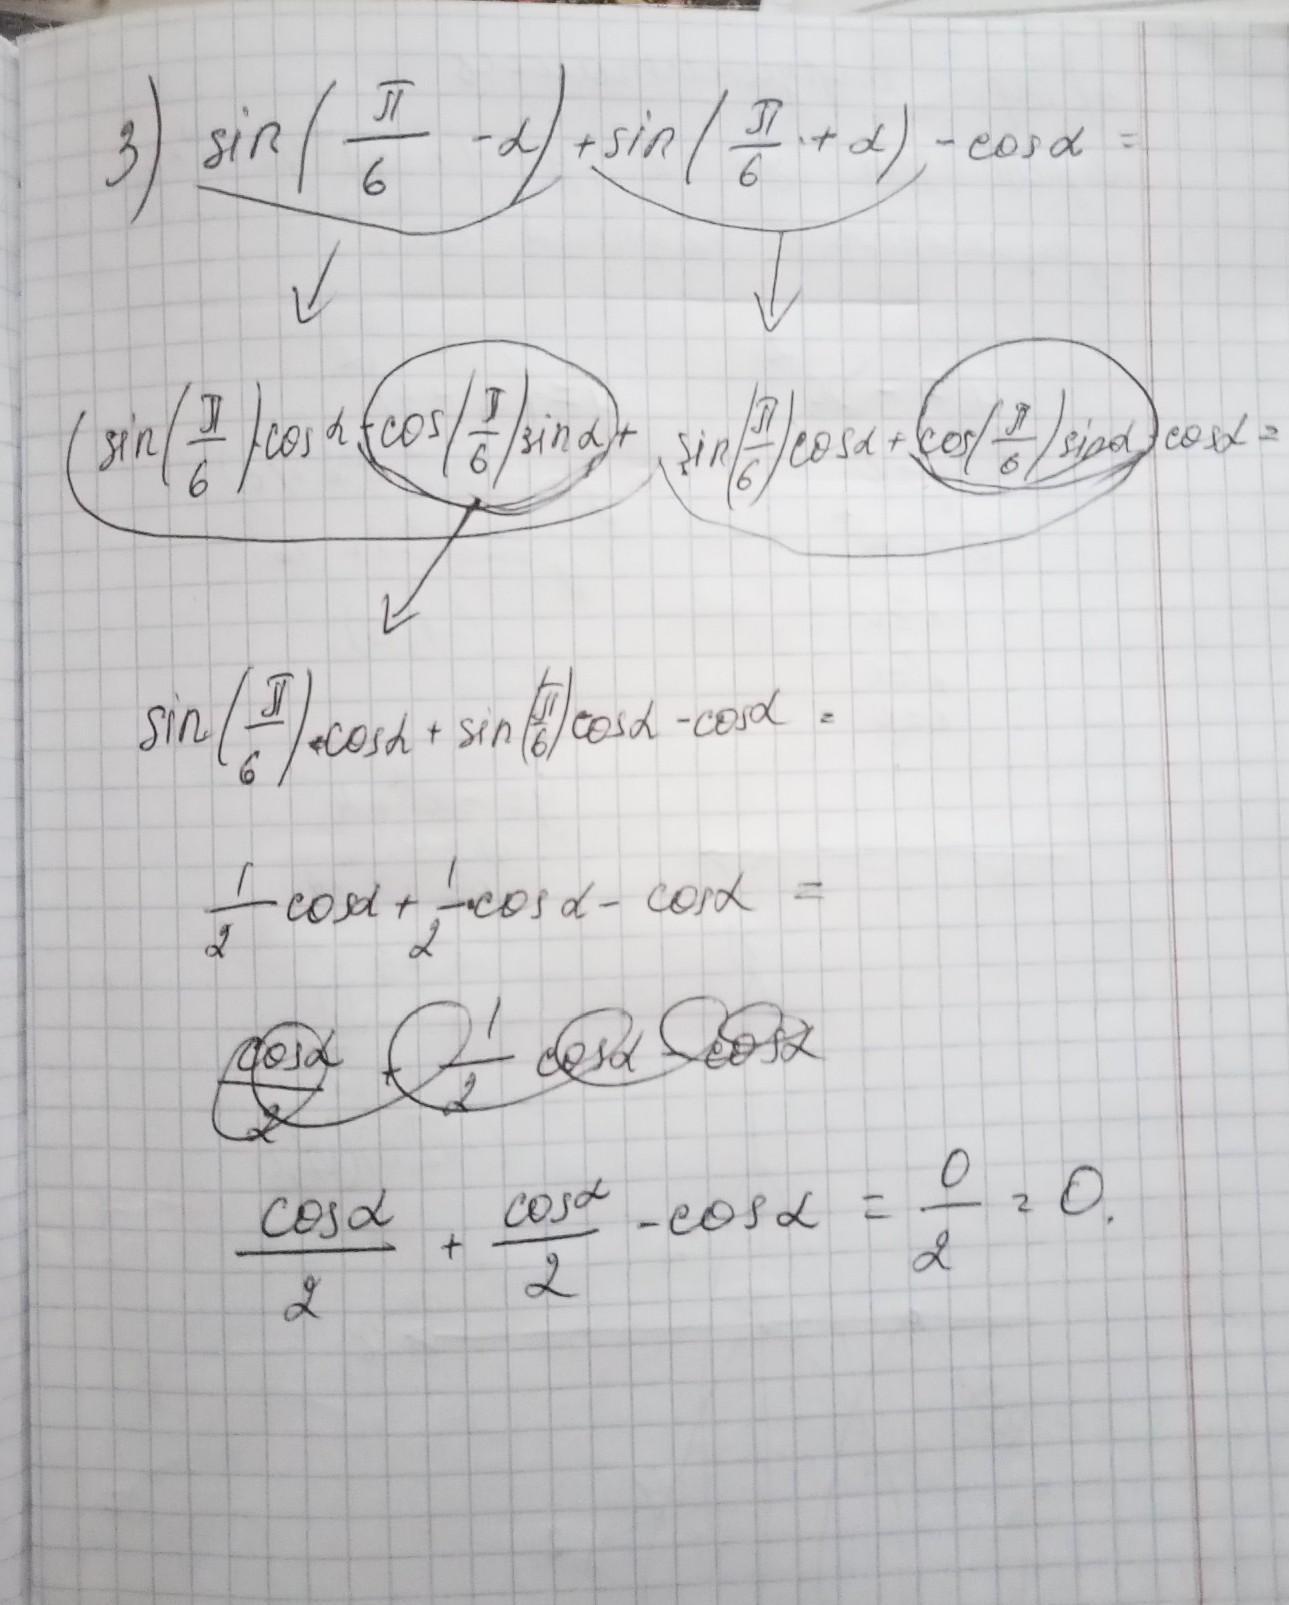 3) sin(π/6 - α) + sin(π/6 + α) - cosα =
(sin(π/6)·cosα - cos(π/6)sinα + sin(π/6)cosα + cos(π/6)sinα) cosα =
sin(π/6)·cosα + sin(π/6)cosα - cosα =
1/2 cosα + 1/2·cosα - cosα =
cosα/2 + 1/2 cosα - cosα
cosα/2 + cosα/2 - cosα = 0/2 = 0.